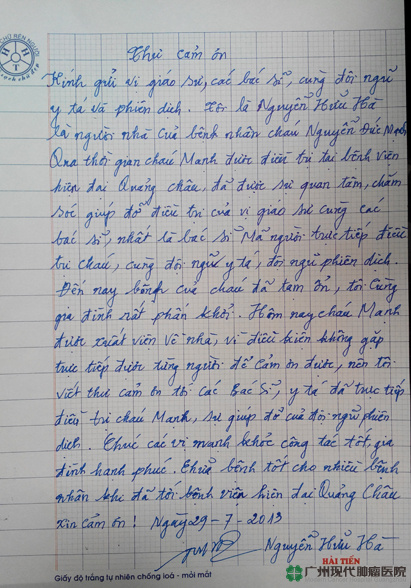 CHO BÉN NGƯỜI
Thư cảm ơn
Kính gửi vị giáo sư, các bác sĩ, cùng đội ngũ
y tá và phiên dịch. Tôi là Nguyễn Hữu Hà
là người nhà của bệnh nhân cháu Nguyễn Đức Mạnh
Qua thời gian cháu Mạnh được điều trị tại bệnh viện
hiện đại Quảng Châu, đã được sự quan tâm, chăm
sóc giúp đỡ điều trị của vị giáo sư cùng các
bác sĩ, nhất là bác sĩ Mã người trực tiếp điều
trị cháu, cùng đội ngũ y tá, đội ngũ phiên dịch.
Đến nay bệnh của cháu đã tạm ổn, tôi cùng
gia đình rất phấn khởi. Hôm nay cháu Mạnh
được xuất viện về nhà, vì điều kiện không gặp
trực tiếp được từng người để cảm ơn được, nên tôi
viết thư cảm ơn tới các Bác Sĩ, y tá đã trực tiếp
điều trị cháu Mạnh, sự giúp đỡ của đội ngũ phiên
dịch. Chúc các vị mạnh khỏe công tác tốt gia
đình hạnh phúc. Chữa bệnh tốt cho nhiều bệnh
nhân khi đã tới bệnh viện hiện đại Quảng Châu
xin cảm ơn! Ngày 29-7-2013
Nguyễn Hữu Hà
HẢI TIẾN
Giấy độ trắng tự nhiên chống loá - mỏi mắt
广州现代肿瘤医院